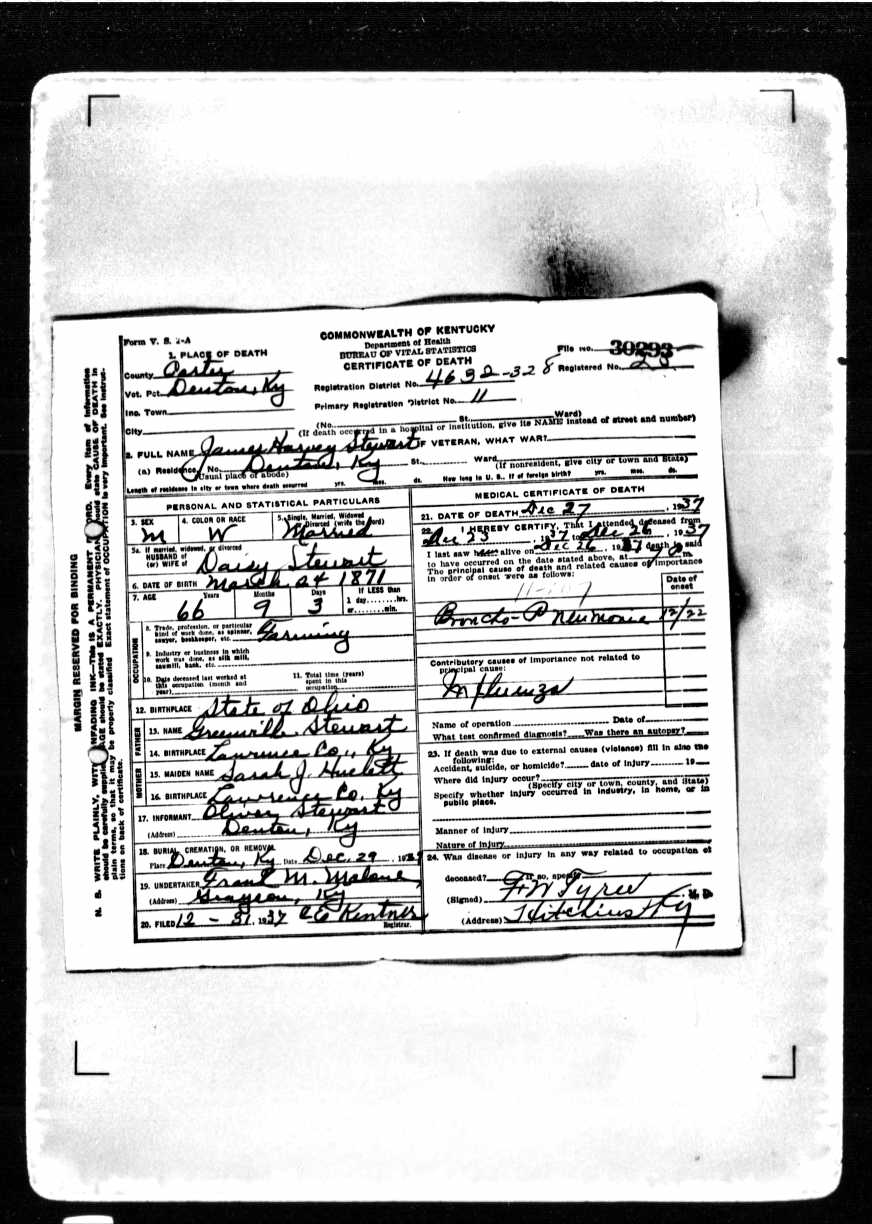 Form V. S. 1-A
COMMONWEALTH OF KENTUCKY
Department of Health
BUREAU OF VITAL STATISTICS
CERTIFICATE OF DEATH
File No. 30293
Registered No. 28
1. PLACE OF DEATH
County Carter
Vot. Pct. Denton, Ky
Inc. Town
City
Registration District No. 4632-328
Primary Registration District No. 11
(No. St. Ward)
(If death occurred in a hospital or institution, give its NAME instead of street and number)
2. FULL NAME James Harvey Stewart IF VETERAN, WHAT WAR?
(a) Residence, No. Denton, Ky St. Ward
(Usual place of abode) (If nonresident, give city or town and State)
Length of residence in city or town where death occurred yrs. mos. ds. How long in U. S., if of foreign birth? yrs. mos. ds.
PERSONAL AND STATISTICAL PARTICULARS
3. SEX M
4. COLOR OR RACE W
5. Single, Married, Widowed or Divorced (write the word) Married
5a. If married, widowed, or divorced
HUSBAND of
(or) WIFE of Daisy Stewart
6. DATE OF BIRTH March 24 1871
7. AGE 66 Years 9 Months 3 Days If LESS than 1 day, hrs. or min.
OCCUPATION
8. Trade, profession, or particular kind of work done, as spinner, sawyer, bookkeeper, etc. Farming
9. Industry or business in which work was done, as silk mill, sawmill, bank, etc.
10. Date deceased last worked at this occupation (month and year)
11. Total time (years) spent in this occupation
12. BIRTHPLACE State of Ohio
FATHER
13. NAME Greenville Stewart
14. BIRTHPLACE Lawrence Co., Ky
MOTHER
15. MAIDEN NAME Sarah J.
16. BIRTHPLACE Lawrence Co. Ky
17. INFORMANT Oliver Stewart
(Address) Denton, Ky
18. BURIAL, CREMATION, OR REMOVAL
Place Denton, Ky. Date Dec. 29, 1937
19. UNDERTAKER Grant M. Malone
(Address) Grayson, Ky
20. FILED 12 - 31, 1937 Kentner
Registrar.
MEDICAL CERTIFICATE OF DEATH
21. DATE OF DEATH Dec 27, 1937
22. I HEREBY CERTIFY, That I attended deceased from
Dec 23, 1937 to Dec 26, 1937
I last saw him alive on Dec 26, 1937 death is said
to have occurred on the date stated above, at m.
The principal cause of death and related causes of importance
in order of onset were as follows:
Date of onset
Broncho-Pneumonia 12/22
Contributory causes of importance not related to
principal cause:
Influenza
Name of operation Date of
What test confirmed diagnosis? Was there an autopsy?
23. If death was due to external causes (violence) fill in also the
following:
Accident, suicide, or homicide? date of injury 19
Where did injury occur?
(Specify city or town, county, and State)
Specify whether injury occurred in industry, in home, or in
public place.
Manner of injury
Nature of injury
24. Was disease or injury in any way related to occupation of
deceased? If so, specify
(Signed) Tyree M. D.
(Address) Hitchins Ky
MARGIN RESERVED FOR BINDING